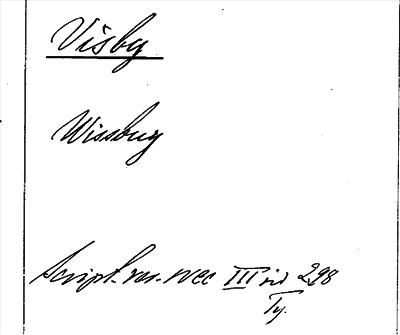 Visby
Wissbuy
Script. rer. svec III sid 298
Ty.